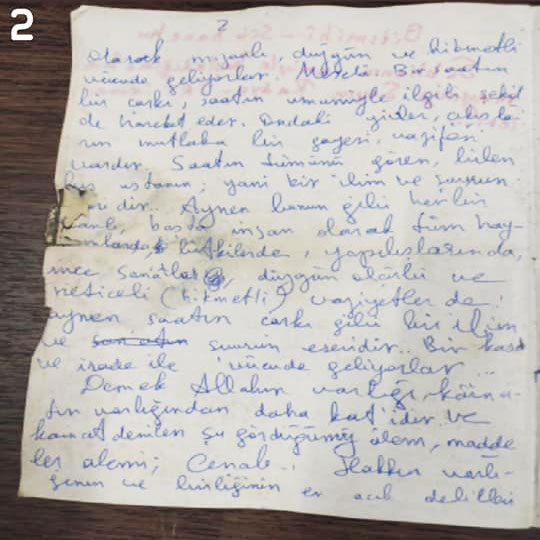 2
2
olarak mizanlı, düzgün ve hikmetli
vücude geliyorlar. Meselâ Bir saatın
bir çarkı, saatın umumiyle ilgili şekil
de hareket eder. Ondaki
mutlaka bir gayesi, vazifesi
vardır. Saatın tümünü gören, bilen
ustanın; yani bir ilim ve şuurun
dir.. Aynen bunun gibi her bir
başta insan olarak tüm hay-
bitkilerde, yapılışlarında,
ince San'atlar, düzgün ölçülü ve
neticeli (hikmetli) vaziyetler de
aynen saatın çarkı gibi bir ilim
ve şuurun eseridir.. Bir kasd
ve irade ile vücude geliyorlar ...
Demek Allahın varlığı, kâina-
tın varlığından daha kat'idir. ve
kainat denilen şu gördüğümüz âlem, madde
ler alemi; Cenab-ı Hakkın varlı-
ğının ve birliğinin en açık delilleri